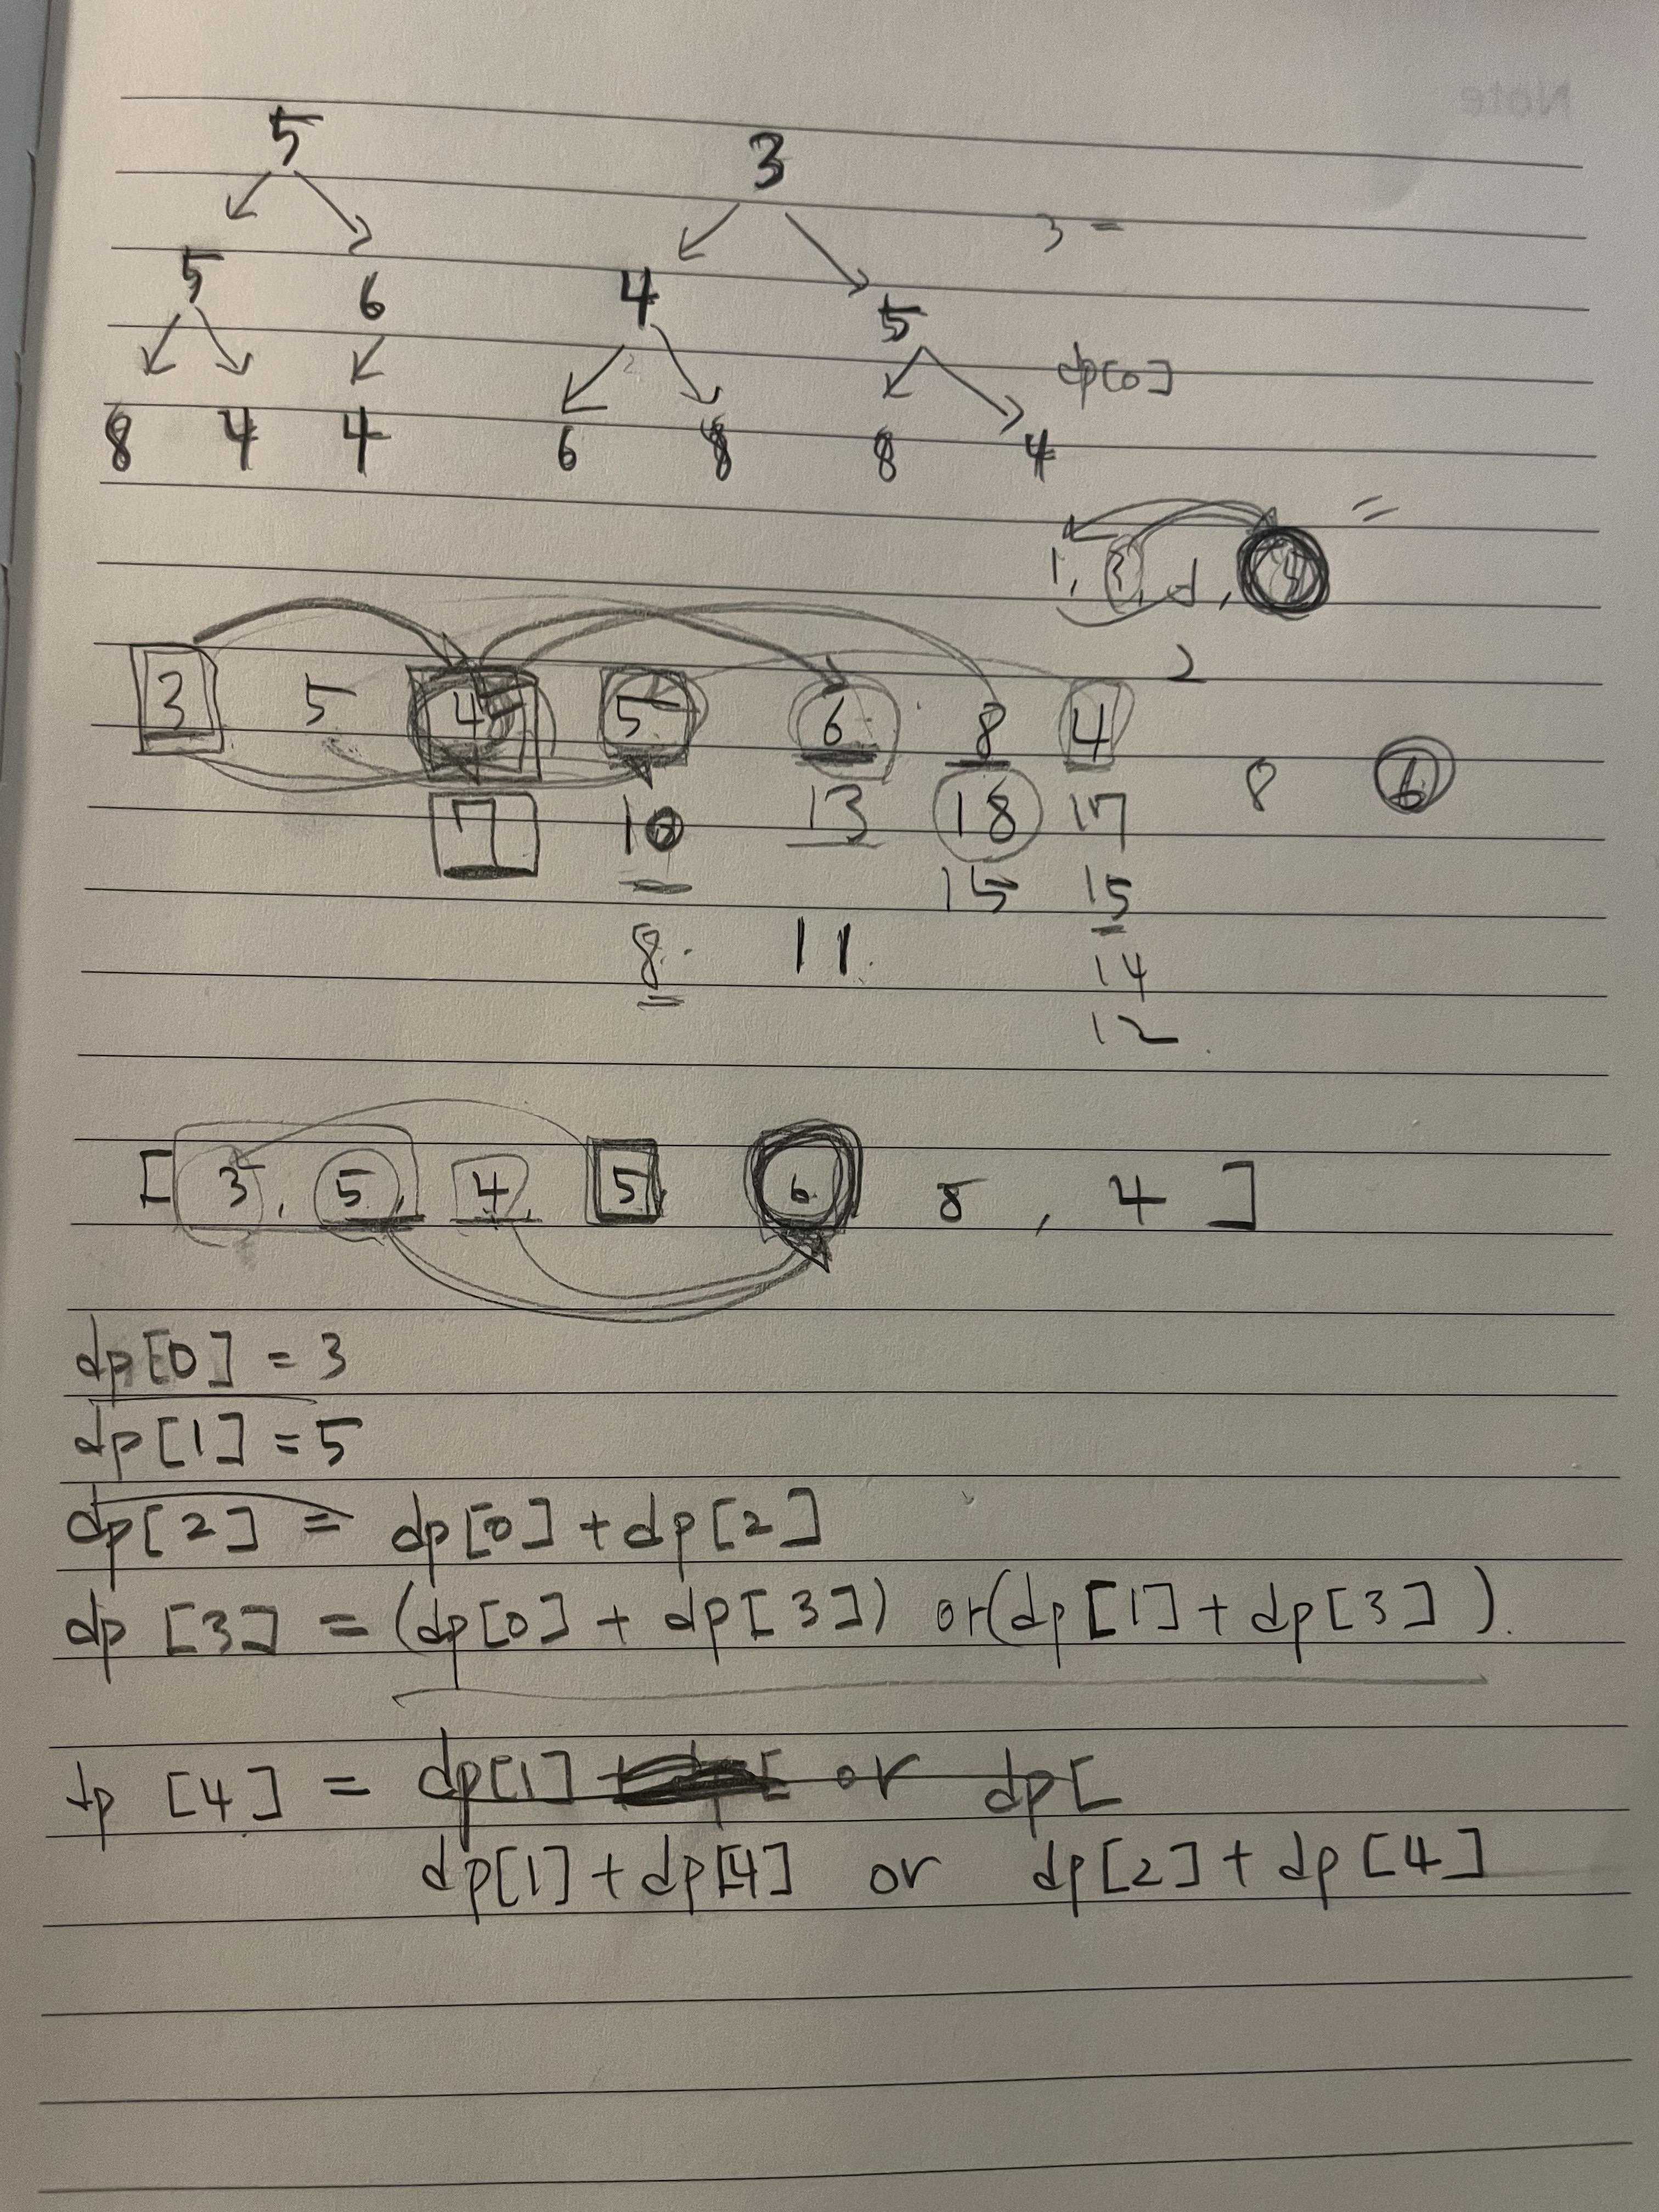 Note
5 3
3 =
5 6 4 5
dp[0]
8 4 4 6 8 8 4
1,
2
3 5 4 5 6 8 4
8 6
7 10 13 18 17
15 15
8. 11.
14
12
[ 3, 5, 4, 5, 6 8 , 4 ]
dp[0] = 3
dp[1] = 5
dp[2] = dp[0] + dp[2]
dp [3] = (dp[0] + dp[3]) or (dp[1] + dp[3]).
dp [4] = dp[1] or dp[
dp[1] + dp[4] or dp[2] + dp[4]